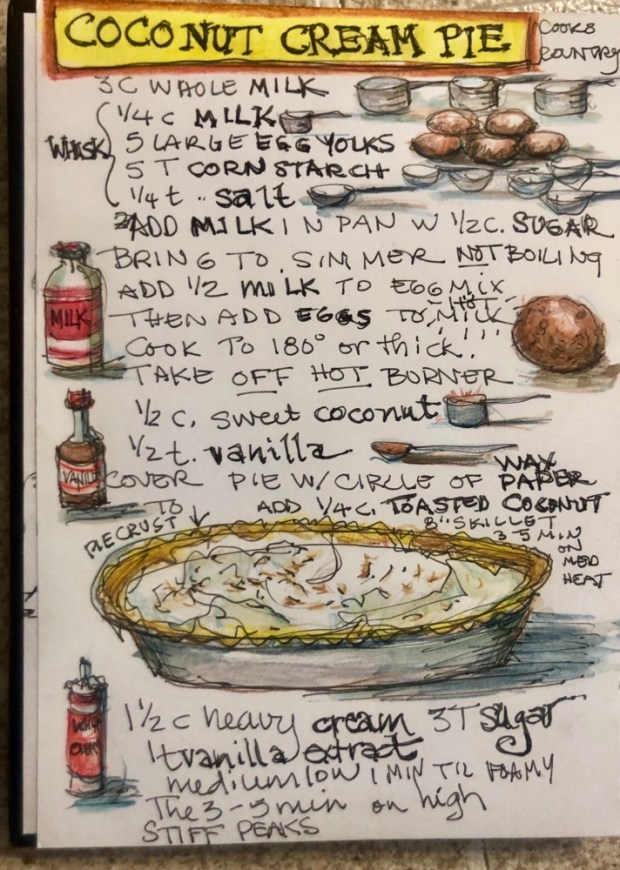 COCONUT CREAM PIE
COOKS
COUNTRY
3C WHOLE MILK
1/4 c MILK
WHISK
5 LARGE EGG YOLKS
5 T CORNSTARCH
1/4 t .. salt
ADD MILK IN PAN W 1/2 C. SUGAR
BRING TO SIMMER NOT BOILING
ADD 1/2 MILK TO EGG MIX
THEN ADD EGGS TO HOT MILK
MILK
COOK TO 180° or thick!
TAKE OFF HOT BURNER
1/2 C. sweet coconut
1/2 t. vanilla
VANILL
COVER PIE W/ CIRCLE OF WAX PAPER
TO PIECRUST
ADD 1/4 C. TOASTED COCONUT
8" SKILLET
3 5 MIN
ON
MED
HEAT
1 1/2 c heavy cream 3T sugar
1 t vanilla extract
medium low 1 MIN TIL FOAMY
The 3-5 min on high
STIFF PEAKS